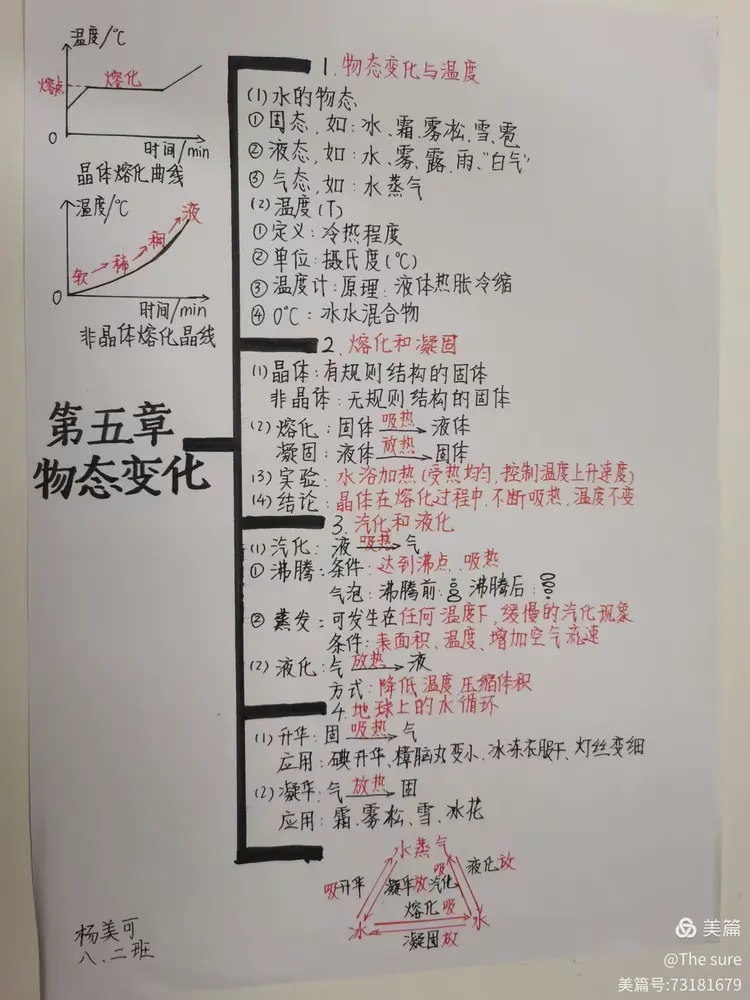 温度/℃
熔点
熔化
0
时间/min
晶体熔化曲线
温度/℃
软→稀→稠→液
0
时间/min
非晶体熔化晶线
第五章
物态变化
1.物态变化与温度
(1)水的物态
①固态,如:冰、霜、雾凇、雪、雹
②液态,如:水、雾、露、雨、"白气"
③气态,如:水蒸气
(2)温度(T)
①定义:冷热程度
②单位:摄氏度(℃)
③温度计:原理:液体热胀冷缩
④0℃:冰水混合物
2.熔化和凝固
(1)晶体:有规则结构的固体
非晶体:无规则结构的固体
(2)熔化:固体 吸热→ 液体
凝固:液体 放热→ 固体
(3)实验:水浴加热(受热均匀,控制温度上升速度)
(4)结论:晶体在熔化过程中,不断吸热,温度不变
3.汽化和液化
(1)汽化:液 吸热→ 气
①沸腾:条件:达到沸点、吸热
气泡:沸腾前: 沸腾后:
②蒸发:可发生在任何温度下,缓慢的汽化现象
条件:表面积、温度、增加空气流速
(2)液化:气 放热→ 液
方式:降低温度、压缩体积
4.地球上的水循环
(1)升华:固 吸热→ 气
应用:碘升华、樟脑丸变小、冰冻衣服干、灯丝变细
(2)凝华:气 放热→ 固
应用:霜、雾凇、雪、冰花
水蒸气
吸升华
凝华放
汽化吸
液化放
熔化吸
冰
水
凝固放
杨美可
八、二班
美篇
@The sure
美篇号:73181679